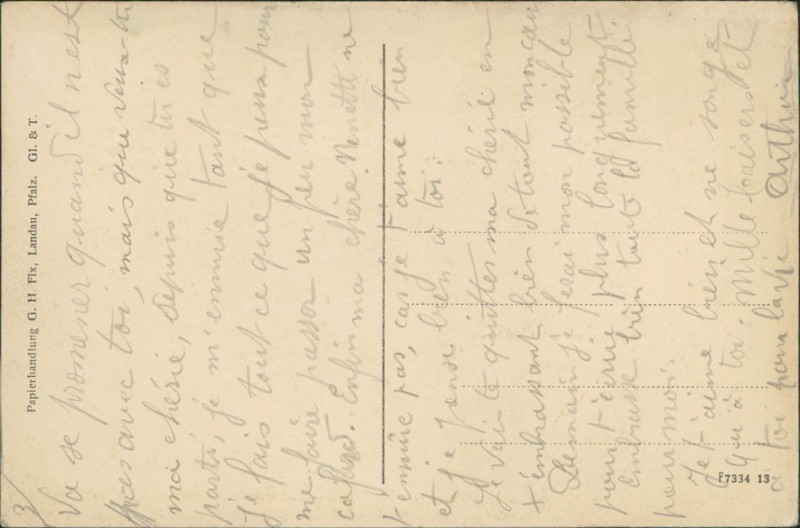 3/
Va se promener quand il n'est
pas avec toi, mais que veux-tu
ma chérie, depuis que tu es
parti, je m'ennuie tant que
je fais tout ce que je peux pour
me faire passer un peu mon
cafard. Enfin ma chère Nenette ne
t'ennuie pas, car je t'aime bien
et je pense bien à toi.
Je vais te quitter ma chérie en
t'embrassant bien de tout mon cœur
Demain je ferai mon possible
pour t'écrire plus longuement.
Embrasse bien toute la famille
pour moi.
Je t'aime bien et ne songe
qu'à toi. Mille baisers et
à toi pour la vie Arthur
Papierhandlung G. H Fix, Landau, Pfalz. Gl. & T.
F7334 13